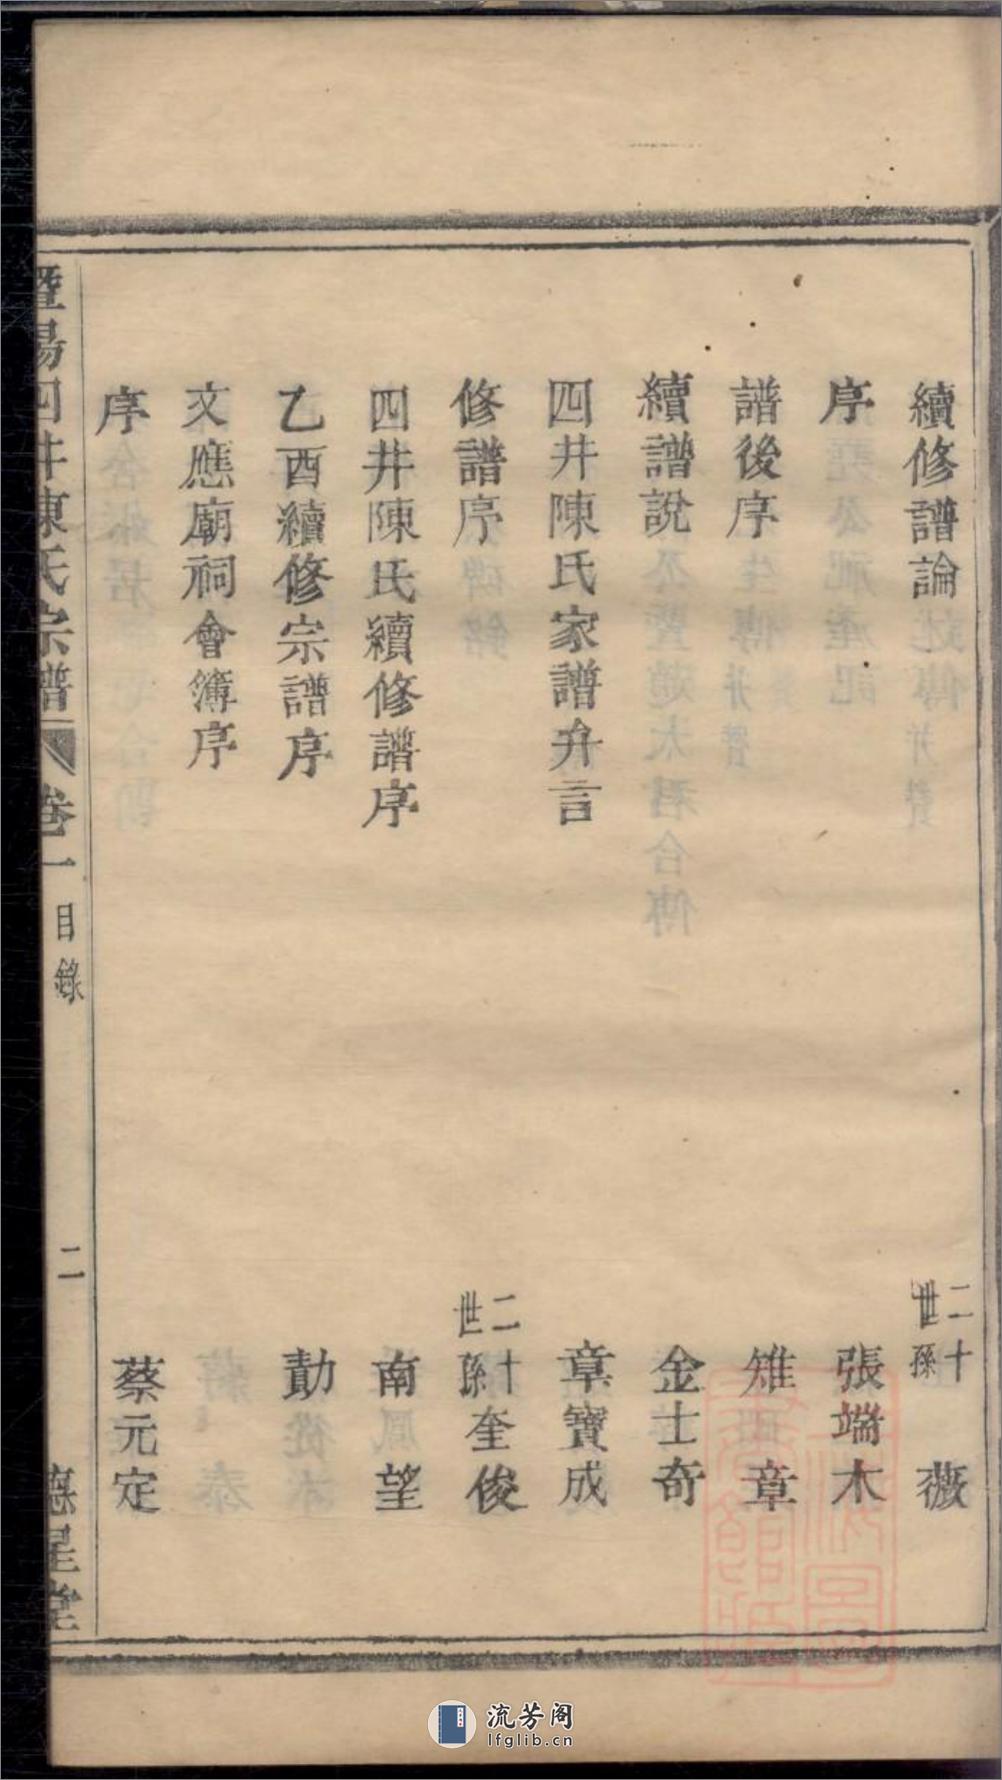 續修譜論 二十世孫 薇
序 張端木
譜後序 雉章
續譜說 金士奇
四井陳氏家譜弁言 章寶成
修譜序 二十世孫奎俊
四井陳氏續修譜序 南望
乙酉續修宗譜序 勣
文應廟祠會簿序
序 蔡元定
暨陽四井陳氏宗譜 卷一 目錄 二 德星堂
流芳阁
lfglib.cn